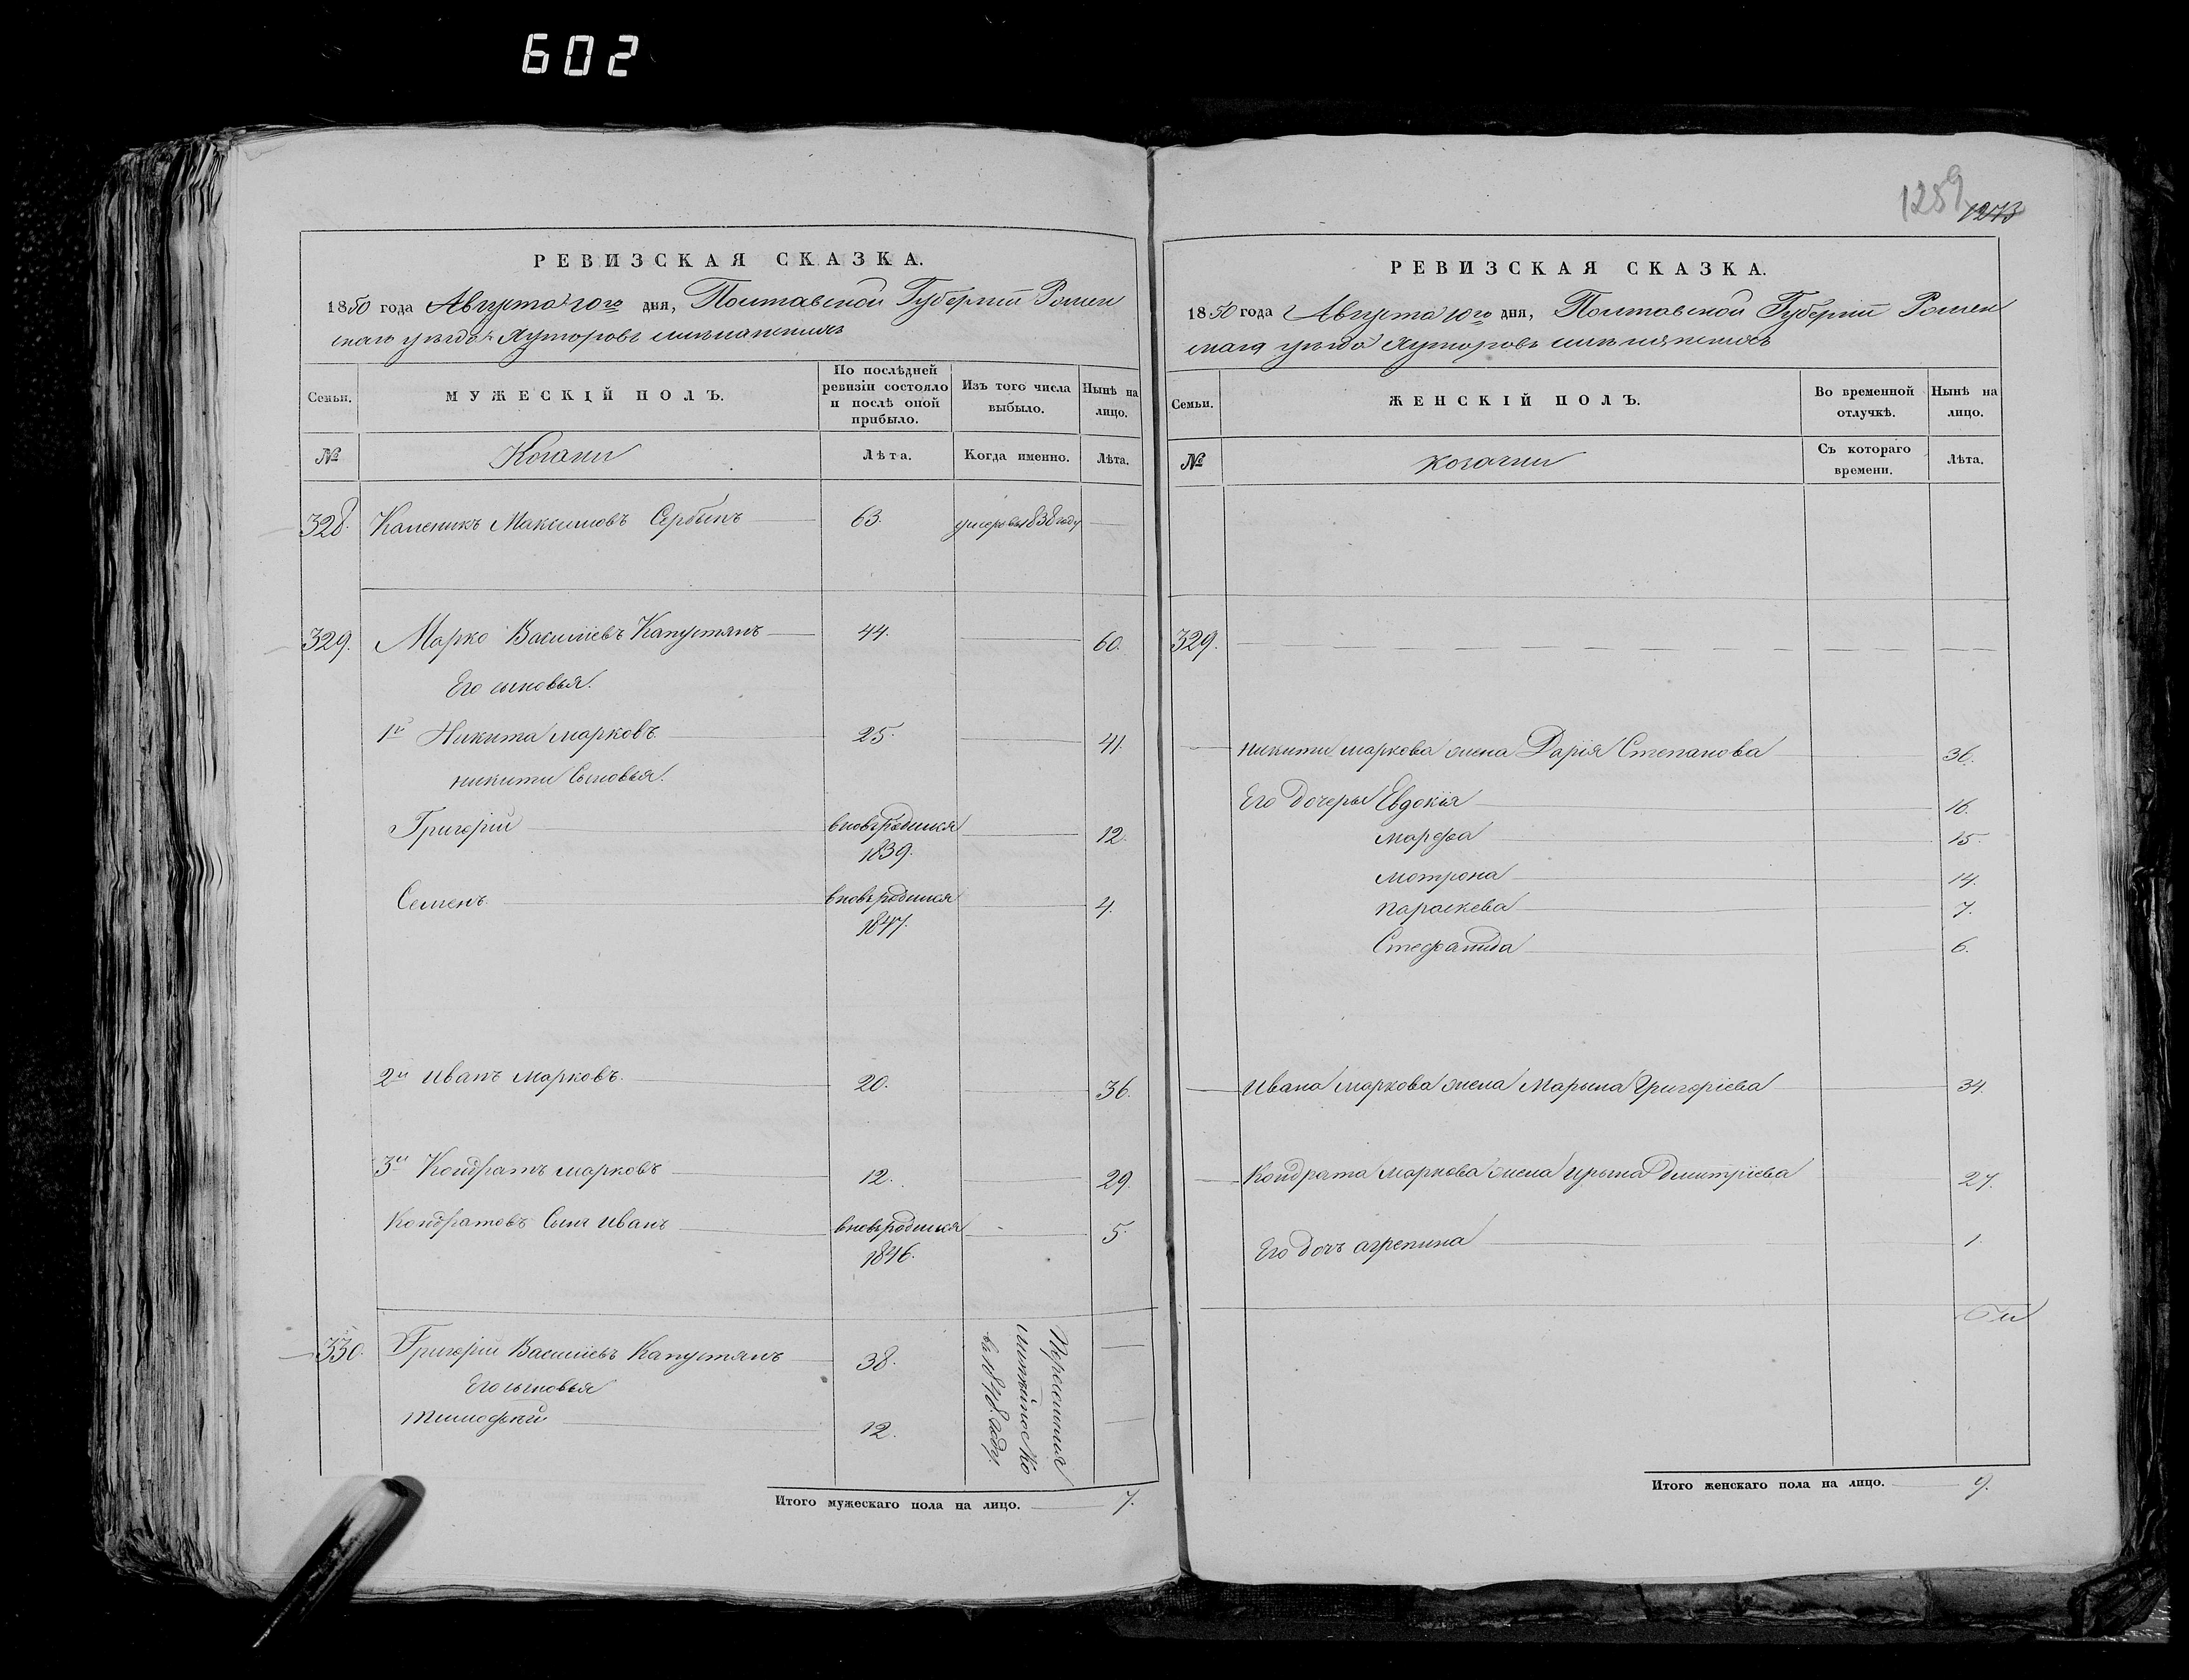 602
1259
1273
РЕВИЗСКАЯ СКАЗКА.
1850 года Августа 10го дня, Полтавской Губерніи Ромен
скаго уезда Хуторовъ
Семьи. МУЖЕСКІЙ ПОЛЪ. По послѣдней ревизіи состояло и послѣ оной прибыло. Изъ того числа выбыло. Нынѣ на лицо.
№ Козаки Лѣта. Когда именно. Лѣта.
328. Каленикъ Максимовъ Сербынъ 63. умеръ въ 1838 году
329. Марко Василіевъ Капустянъ 44. 60.
Его сыновья.
1й Никита марковъ 25. 41.
никиты Сыновья.
Григорій вновьродился 1839. 12.
Семенъ вновьродился 1847. 4.
2й иванъ марковъ. 20. 36.
3й Кондратъ марковъ 12. 29.
Кондратовъ Сынъ иванъ вновьродился 1846. 5.
330. Григорій Василіевъ Капустянъ 38.
Его сыновья
тимофѣй 12.
въ 1848 году.
Итого мужескаго пола на лицо. 7.
РЕВИЗСКАЯ СКАЗКА.
1850 года Августа 10го дня, Полтавской Губерніи Ромен
скаго уезда Хуторовъ
Семьи. ЖЕНСКІЙ ПОЛЪ. Во временной отлучкѣ. Нынѣ на лицо.
№ козачки Съ котораго времени. Лѣта.
329.
никиты маркова жена Дарія Степанова 36.
Его дочеры Евдокія 16.
марфа 15.
мотрона 14.
параскева 7.
Стефанида 6.
ивана маркова жена Марына Григоріева 34.
Кондрата маркова жена ирына Дмитріева 27.
Его дочъ агрепина 1
Итого женскаго пола на лицо. 9.